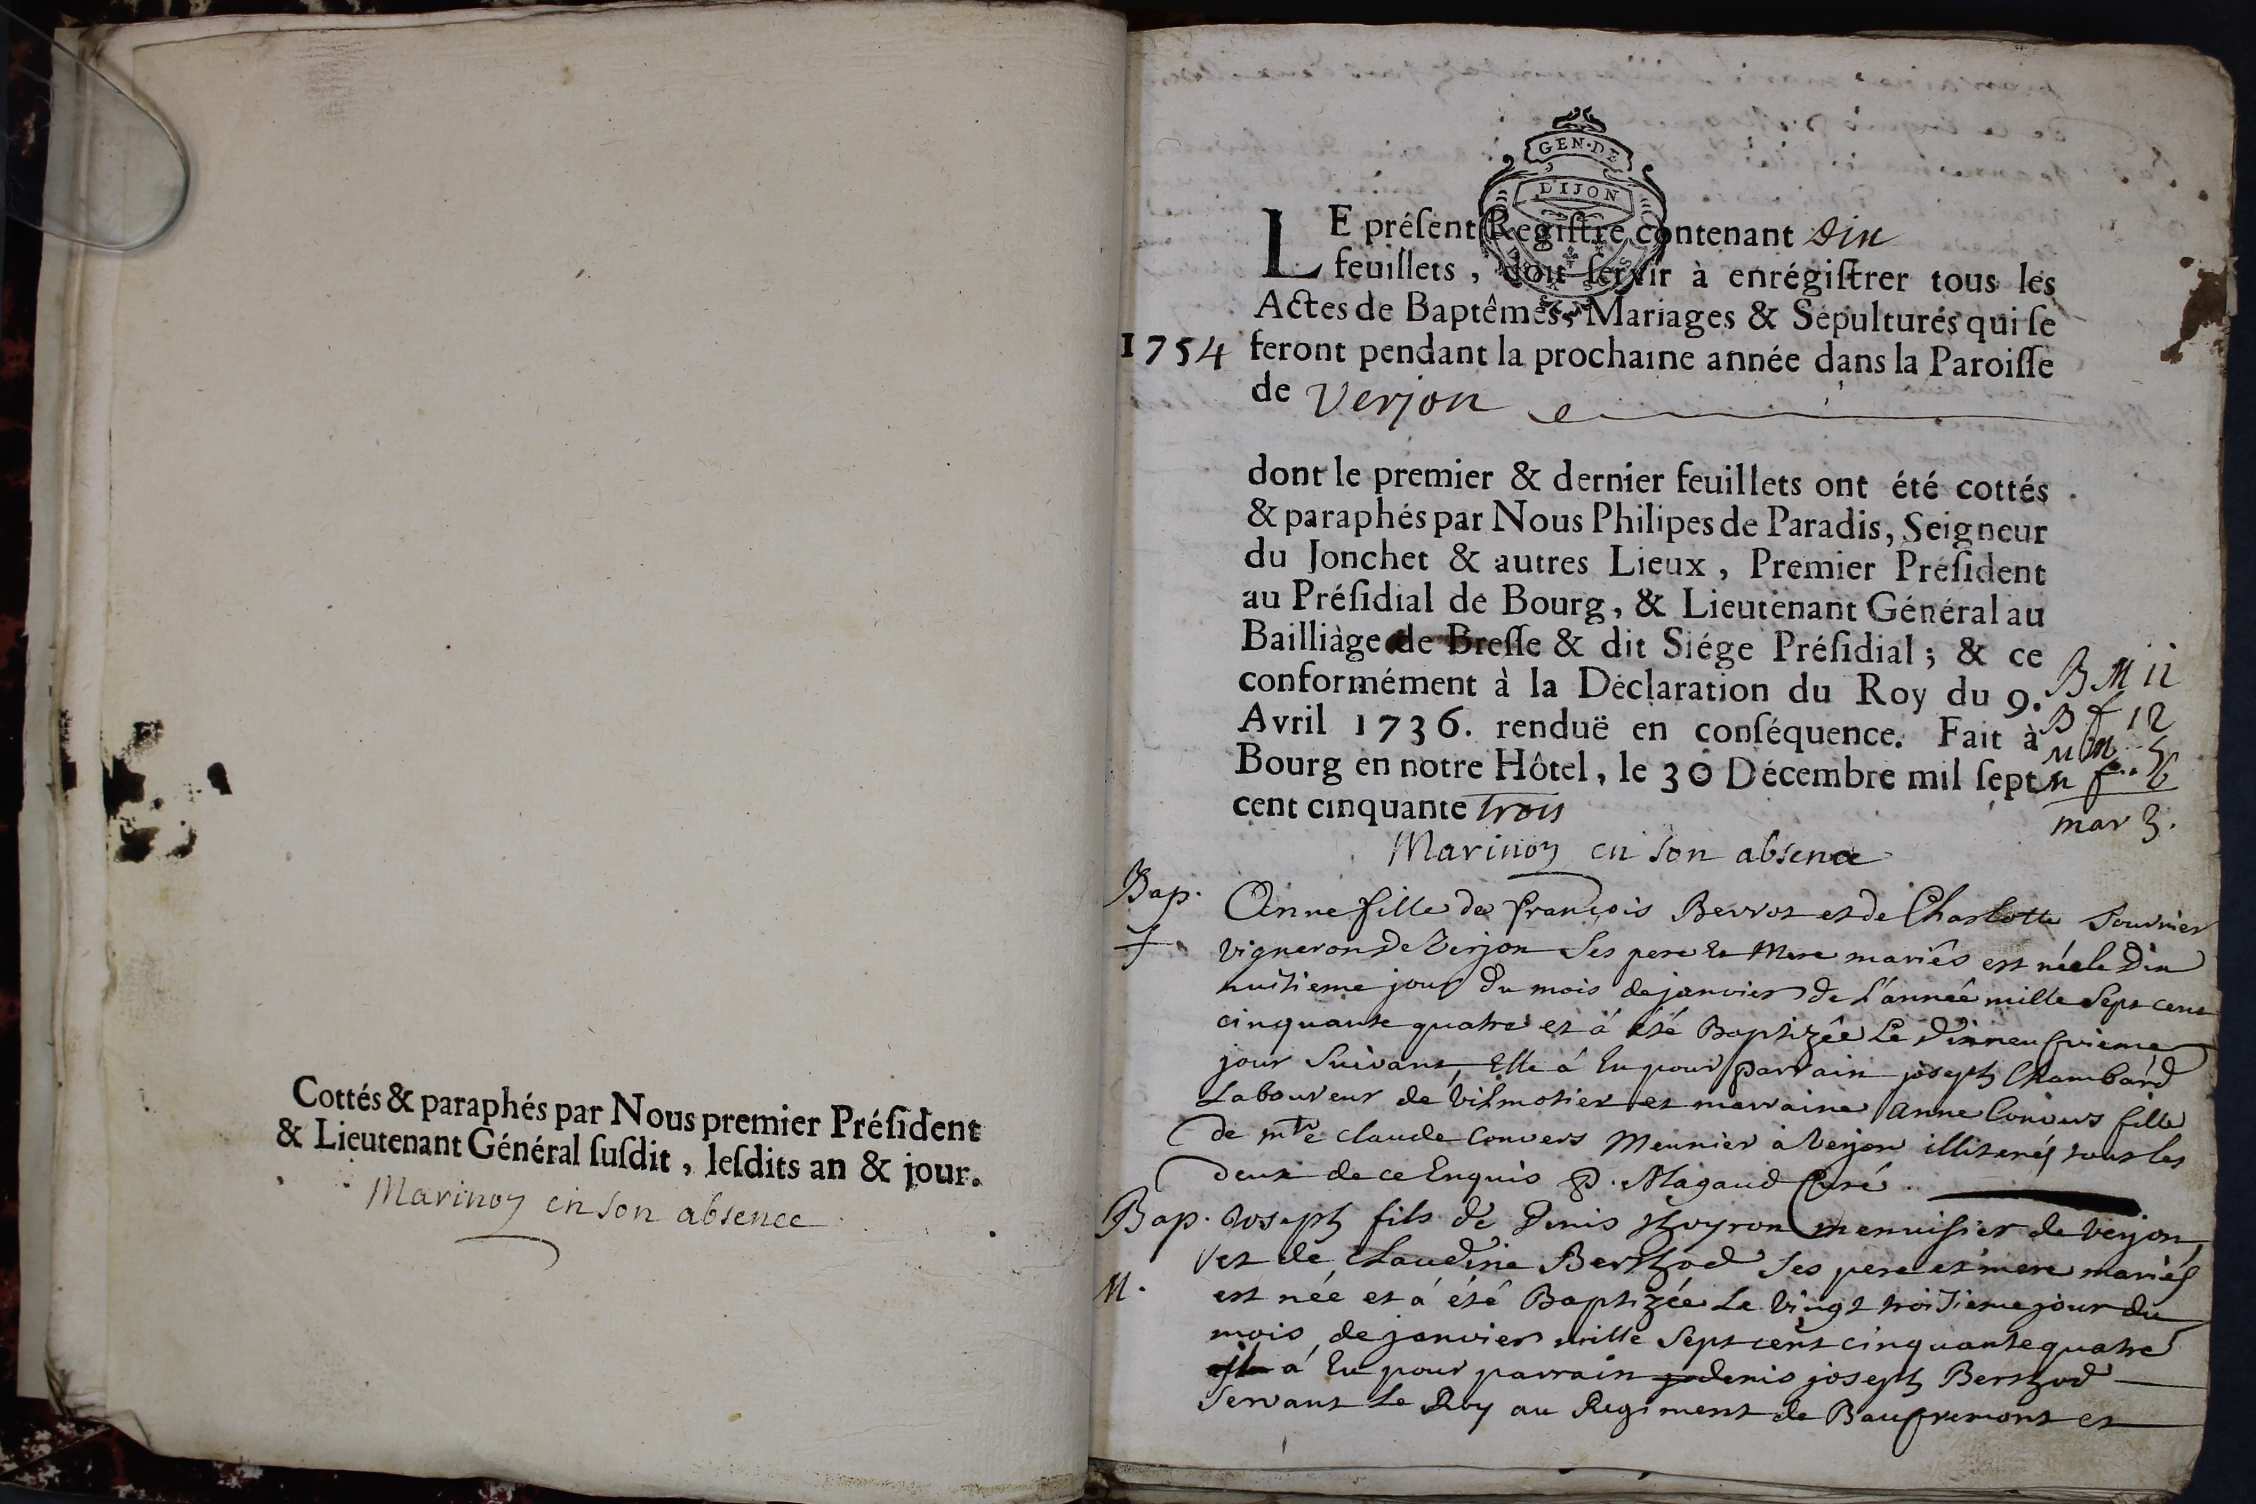 Cottés & paraphés par Nous premier Préſident
& Lieutenant Général ſuſdit, leſdits an & jour.
Marinon en son absence
GEN·DE
DIJON
LE préſent Regiſtre contenant dix
feuillets, doit ſervir à enrégiſtrer tous les
Actes de Baptêmes, Mariages & Sépultures qui ſe
1754 feront pendant la prochaine année dans la Paroiſſe
de Verjon
dont le premier & dernier feuillets ont été cottés
& paraphés par Nous Philipes de Paradis, Seigneur
du Jonchet & autres Lieux, Premier Préſident
au Préſidial de Bourg, & Lieutenant Général au
Bailliàge de Breſſe & dit Siége Préſidial; & ce
conformément à la Déclaration du Roy du 9.
Avril 1736. renduë en conſéquence. Fait à
Bourg en notre Hôtel, le 30 Décembre mil ſept
cent cinquante trois
B M 11
B f 12
M M.. 5
M f.. 6
mar 3.
Marinon en son absence
Bap. Anne fille de François Berrot et de Charlotte fournier
f. vigneron de Verjon Ses pere et Mere mariés est née le Dix
huitieme jour du mois de janvier de l'année mille Sept cent
cinquante quatre et á été Baptizée Le Dixneufvieme
jour Suivant, Elle á Eu pour parrain joseph Chambard
Laboureur de vilmotier et marraine Anne Convers fille
de mtre claude Convers Meunier à Verjon illiterés tous les
deux de ce Enquis P. Magaud Curé
Bap. Joseph fils de Denis thoyron menuisier de verjon,
et de Claudine Berthod Ses pere et mere mariés
M. est née et á été Baptizée Le Vingt troisieme jour du
mois de janvier mille Sept cent cinquante quatre
il á Eu pour parrain jo denis joseph Berthod
Servant Le Roy au Regiment de Baufremont et